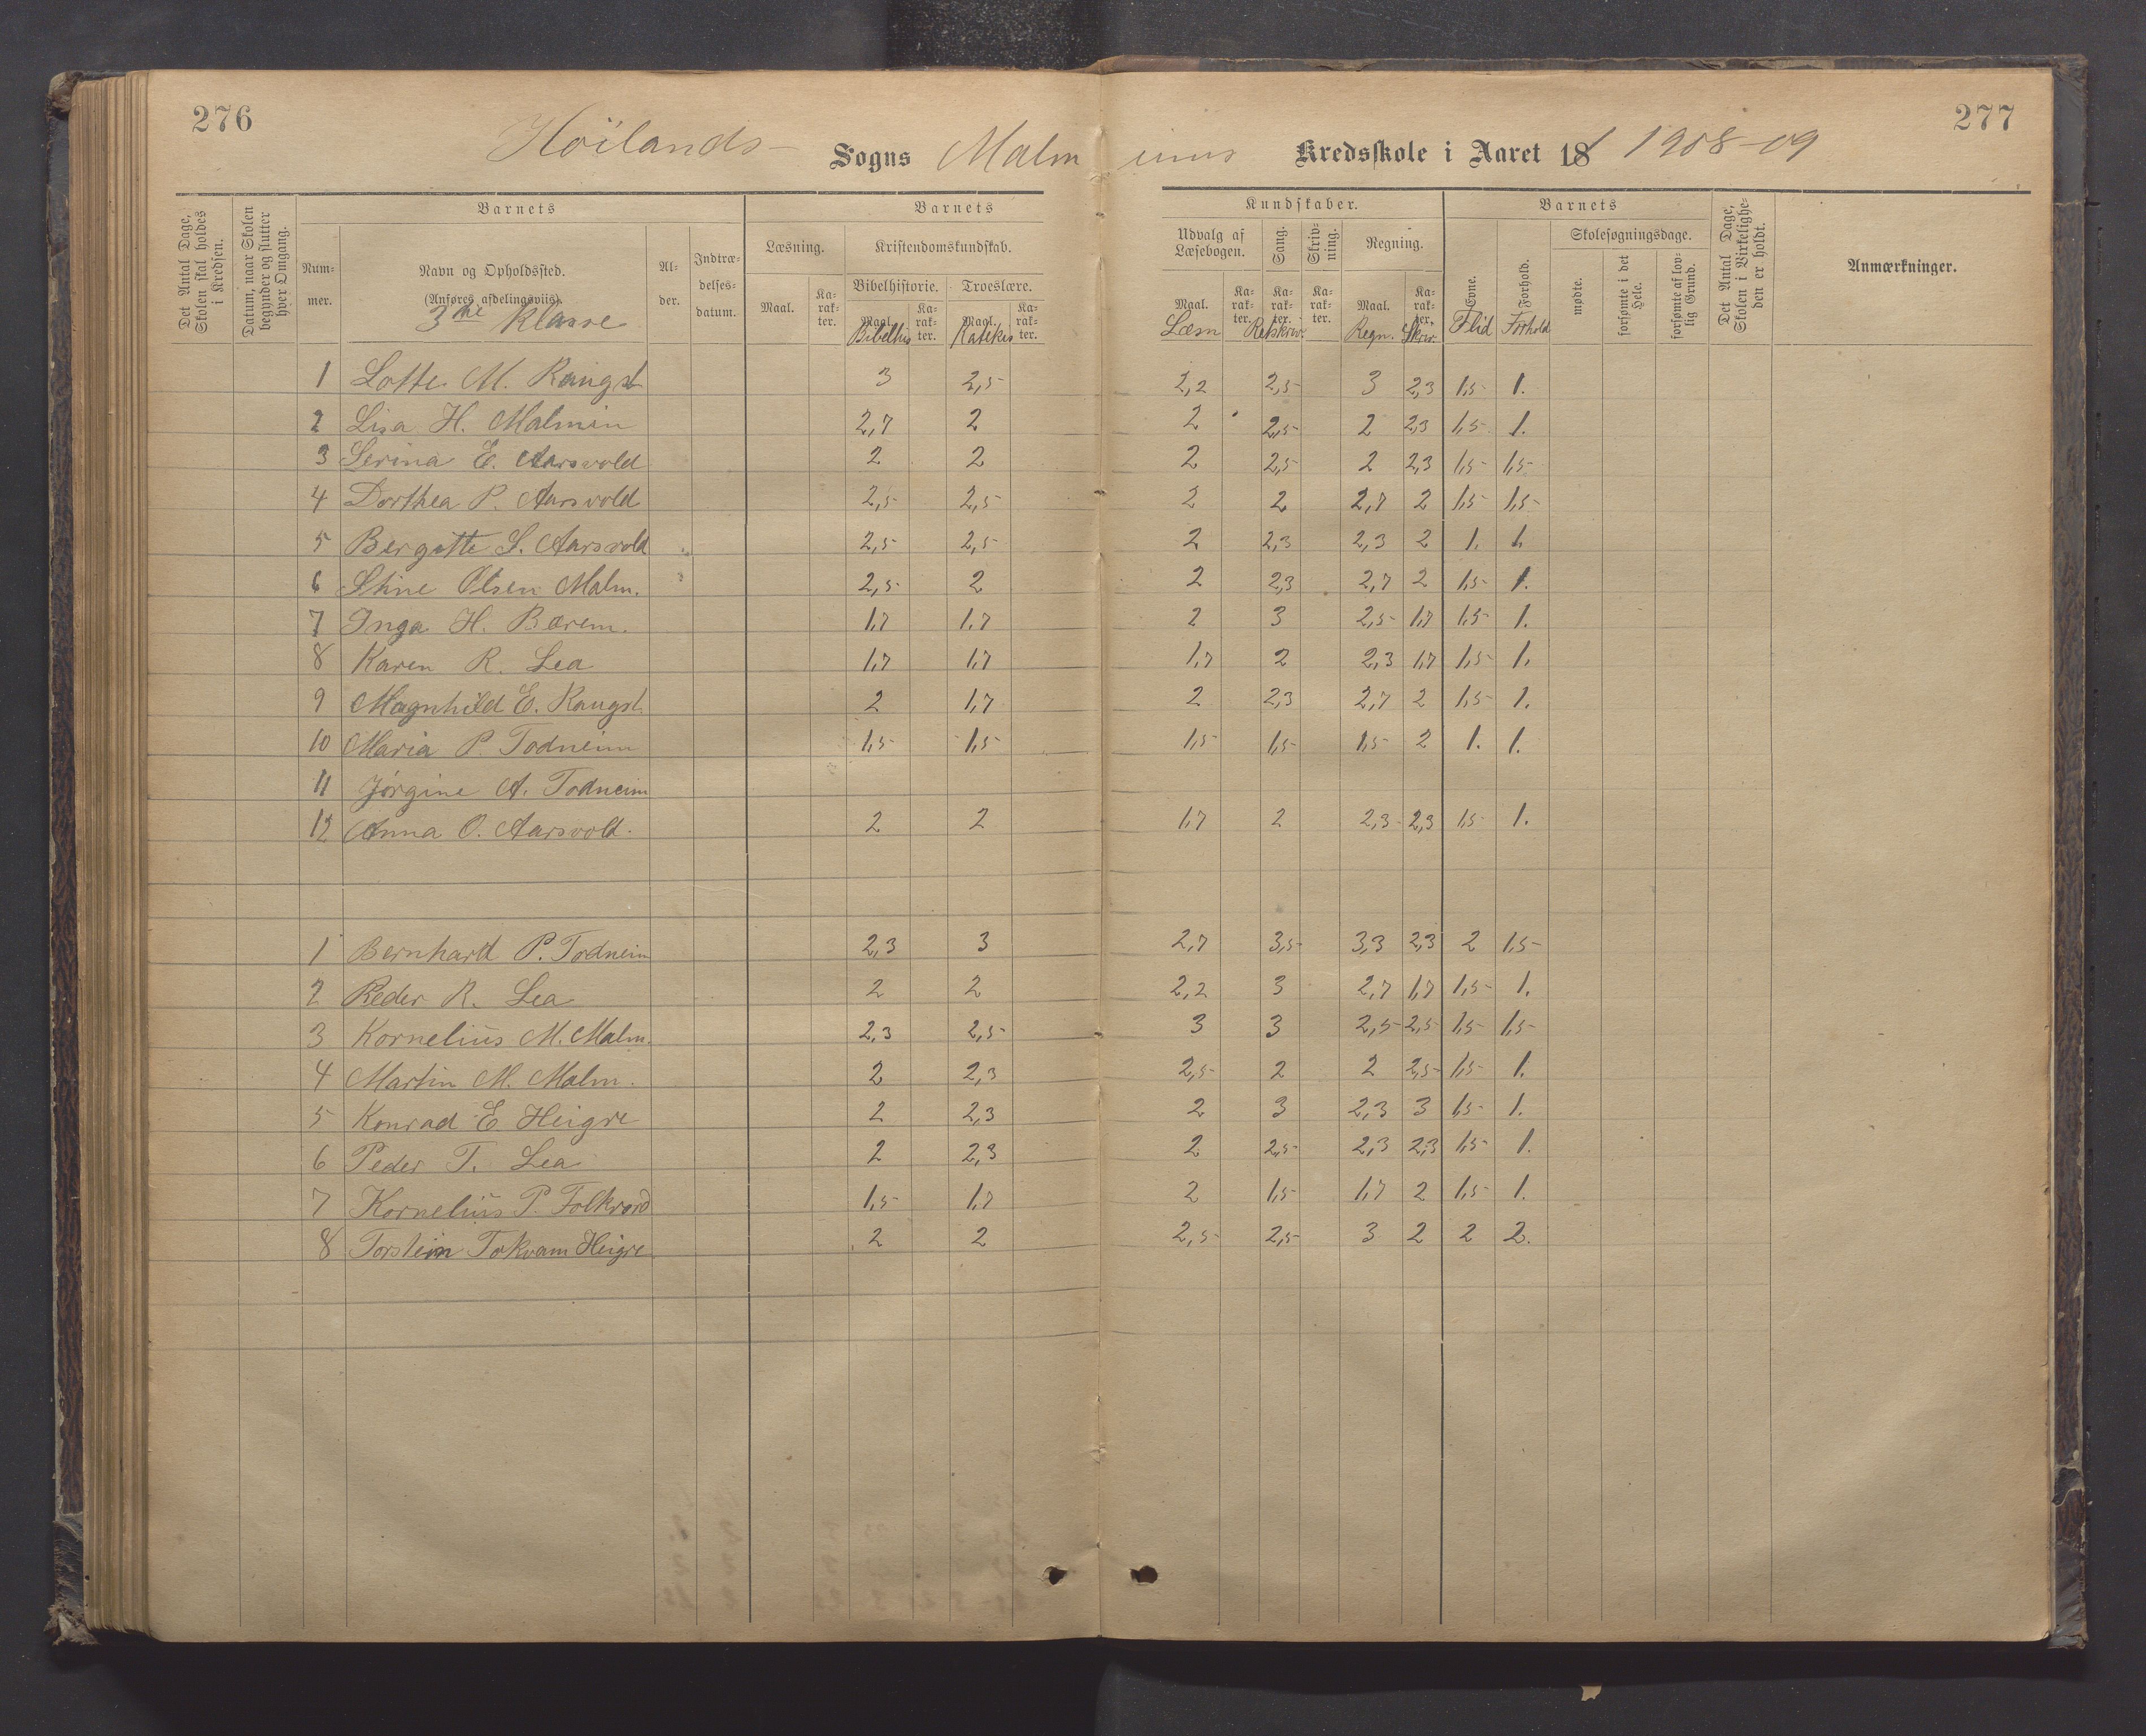 276
277
Höilands- Sogns Malm inns Kredsskole i Aaret 18 1908-09
Det Antal Dage, Skolen skal holdes i Kredsen.
Datum, naar Skolen begynder og slutter hver Omgang.
Barnets
Barnets
Kundskaber.
Barnets
Det Antal Dage, Skolen i Virkeligheden er holdt.
Anmærkninger.
Nummer.
Navn og Opholdssted.
(Anføres afdelingsviis).
3die Klasse
Alder.
Indtrædelsesdatum.
Læsning.
Kristendomskundskab.
Udvalg af Læsebogen.
Sang.
Skrivning.
Regning.
Evne.
Forhold.
Skolesøgningsdage.
Maal.
Karakter.
Bibelhistorie.
Troeslære.
Maal.
Karakter.
Maal.
Karakter.
Maal.
Karakter.
Karakter.
Karakter.
Maal.
Karakter.
mødte.
forsømte i det Hele.
forsømte af lovlig Grund.
Bibelhis Katekis Læsn Retskriv. Regn. Skriv. Flid Forhold
1 Lotte M. Raugst 3 2,5 2,2 2,5 3 2,3 1,5 1.
2 Lisa H. Malmin 2,7 2 2 2,5 2 2,3 1,5 1.
3 Serina E. Aarsvold 2 2 2 2,5 2 2,3 1,5 1,5
4 Dorthea P. Aarsvold 2,5 2,5 2 2 2,7 2 1,5 1,5
5 Bergitte S. Aarsvold 2,5 2,5 2 2,3 2,3 2 1. 1.
6 Stine Olsen Malm. 2,5 2 2 2,3 2,7 2 1,5 1.
7 Inga H. Bærem. 1,7 1,7 2 3 2,5 1,7 1,5 1.
8 Karen R. Lea 1,7 1,7 1,7 2 2,3 1,7 1,5 1.
9 Magnhild E. Raugst. 2 1,7 2 2,3 2,7 2 1,5 1.
10 Maria P. Todneim 1,5 1,5 1,5 1,5 1,5 2 1. 1.
11 Jörgine A. Todneim
12 Anna O. Aarsvold. 2 2 1,7 2 2,3 2,3 1,5 1.
1 Bernhard P. Todneim 2,3 3 2,7 3,5 3,3 2,3 2 1,5
2 Peder R. Lea 2 2 2,2 3 2,7 1,7 1,5 1.
3 Kornelius M. Malm. 2,3 2,5 3 3 2,5 2,5 1,5 1,5
4 Martin M. Malm. 2 2,3 2,5 2 2 2,5 1,5 1.
5 Konrad E Heigre 2 2,3 2 3 2,3 3 1,5 1.
6 Peder T. Lea 2 2,3 2 2,5 2,3 2,3 1,5 1.
7 Kornelius P. Folkvord 1,5 1,7 2 1,5 1,7 2 1,5 1.
8 Torstein Tokvam Heigre 2 2 2,5 2,5 3 2 2 2.